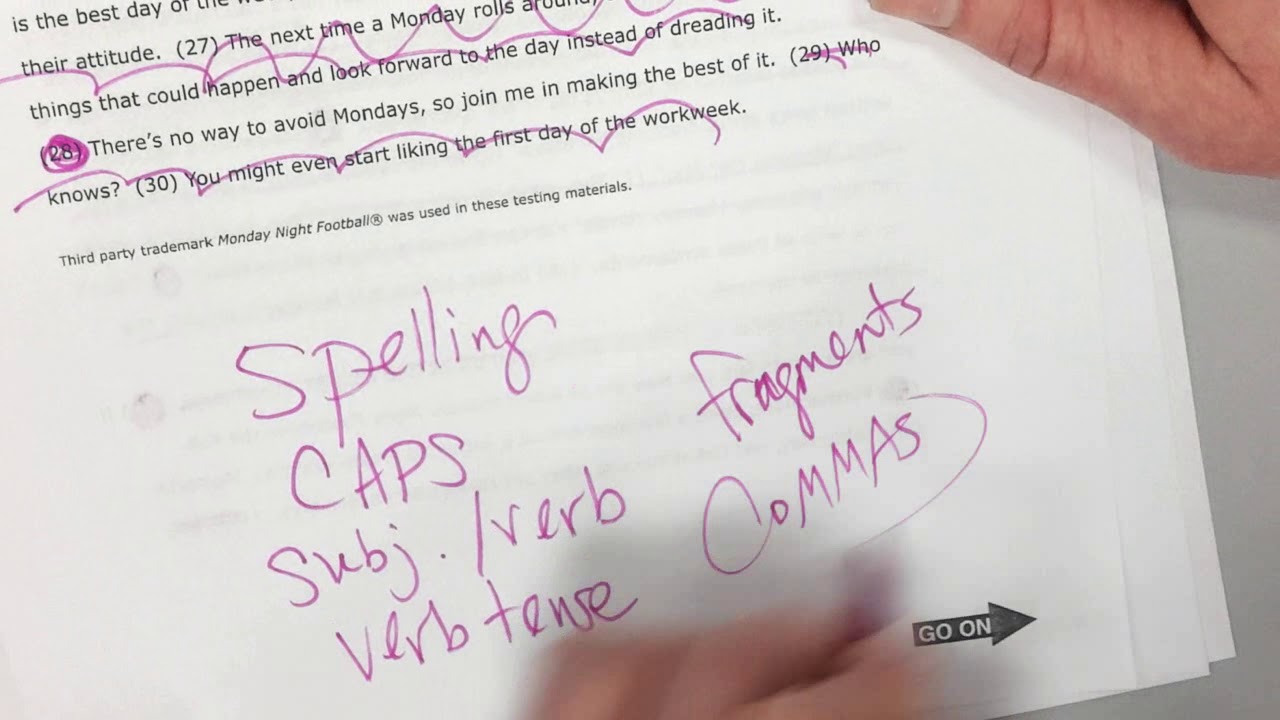 is the best day of the
their attitude. (27) The next time a Monday rolls around,
things that could happen and look forward to the day instead of dreading it.
(28) There's no way to avoid Mondays, so join me in making the best of it. (29) Who
knows? (30) You might even start liking the first day of the workweek.
Third party trademark Monday Night Football® was used in these testing materials.
Spelling
CAPS
Subj./verb
verb tense
Fragments
COMMAS
GO ON